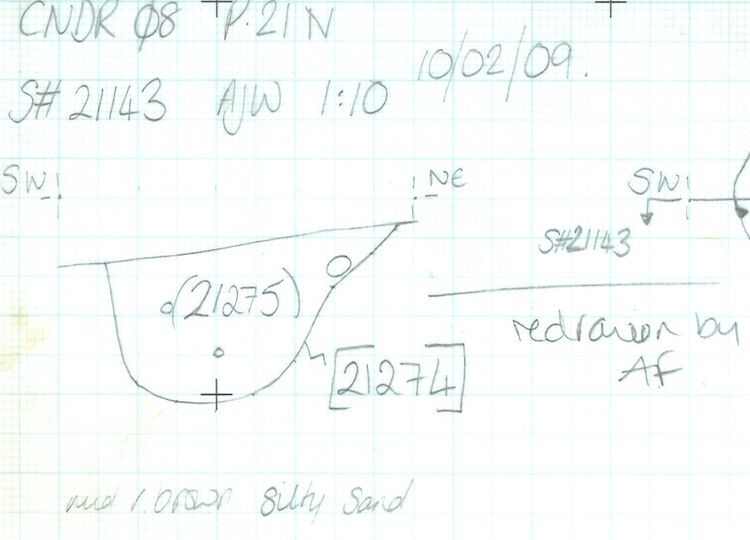 CNDR Ø8 P.21 N
10/02/09.
S# 21143 AJW 1:10
SW
NE
SW
S#21143
(21275)
redrawn by
AF
[21274]
mid r.brown silty sand